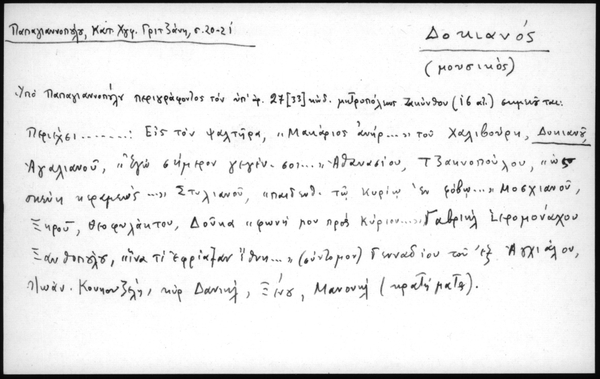 Παπαγιαννοπούλου, Κατ. Χγφ. Γριτζάνη, σ. 20-21
Δοκιανός
(μουσικός)
Ὑπὸ Παπαγιαννοπούλου περιγράφοντος τὸν ὑπ' ἀρ. 27[33] κώδ. μητροπόλεως Ζακύνθου (ις αἰ.) σημειοῦται:
Περιέχει.......: Εἰς τὸν ψαλτῆρα, "Μακάριος ἀνήρ..." τοῦ Χαλιβούρη, Δοκιανοῦ,
Ἀγαλιανοῦ, "Ἐγὼ σήμερον γεγέν. σε..." Ἀθανασίου, Τζακνοπούλου, "ὡς
σκεύη κεραμέως..." Στυλιανοῦ, "παιδευθ. τῷ Κυρίῳ ἐν φόβῳ..." Μοσχιανοῦ,
Ξηροῦ, Θεοφυλάκτου, Δούκα "φωνῇ μου πρὸς Κύριον..." Γαβριὴλ Ἱερομονάχου
Ξανθοπούλου, "ἵνα τί ἐφρύαξαν ἔθνη..." (σύντομον) Γενναδίου τοῦ ἐξ Ἀγχιάλου,
Ἰωάν. Κουκουζέλη, κὺρ Δανιὴλ, Ξένου, Μανουὴλ (κρατήματα).